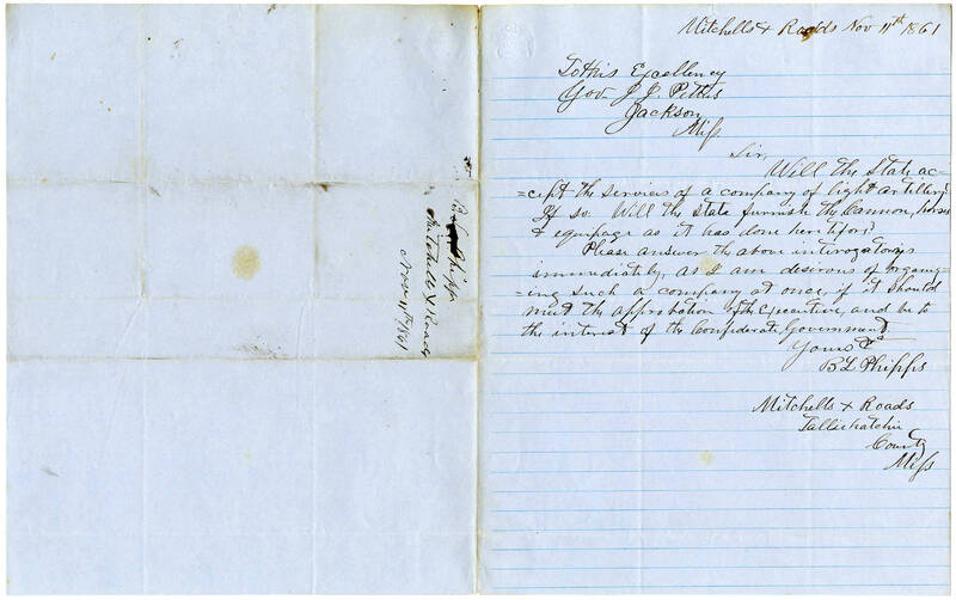 Mitchells + Roads Nov 11th 1861
To His Excellency
Gov. J. J. Pettus
Jackson
Miss
Sir,
Will the State ac-
=cept the services of a company of light artillery?
If so. Will the State furnish the Cannon, horses
& equipage as it has done heretofore?
Please answer the above interogatorys
immediately, as I am desirous of organiz-
=ing such a company at once, if it should
meet the approbation of the Executive, and be to
the interest of the Confederate Government.
Yours &c
B L Phipps
Mitchells + Roads
Tallichatchie
County
Miss
B L Phipps
Mitchells + Roads
Nov 11th 1861